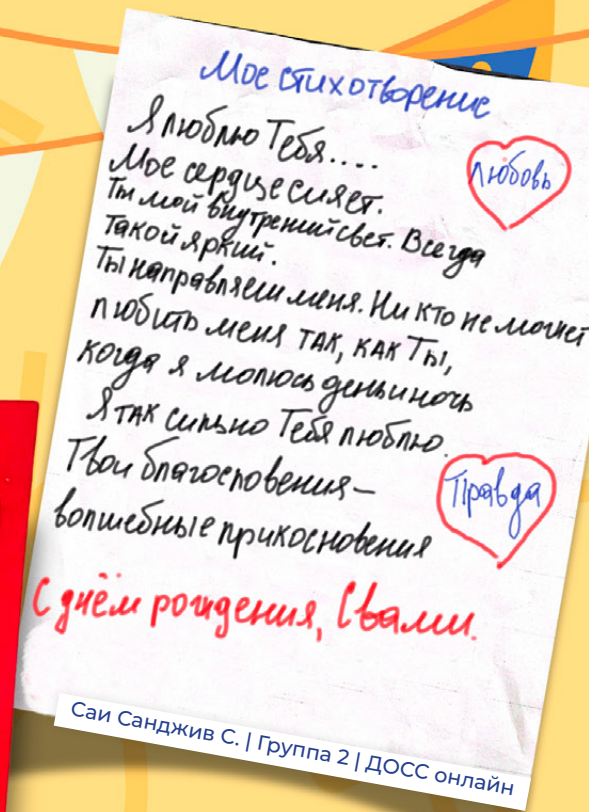 Мое стихотворение
Я люблю Тебя....
любовь
Мое сердце сияет.
Ты мой внутрений свет. Всегда
такой яркий.
Ты направляеш меня. Ни кто не может
любить меня так, как Ты,
когда я молюсь день и ночь
Я так сильно Тебя люблю.
Твои благословения –
Правда
волшебные прикосновения
С днём рождения, Свами.
Саи Санджив С. | Группа 2 | ДОСС онлайн